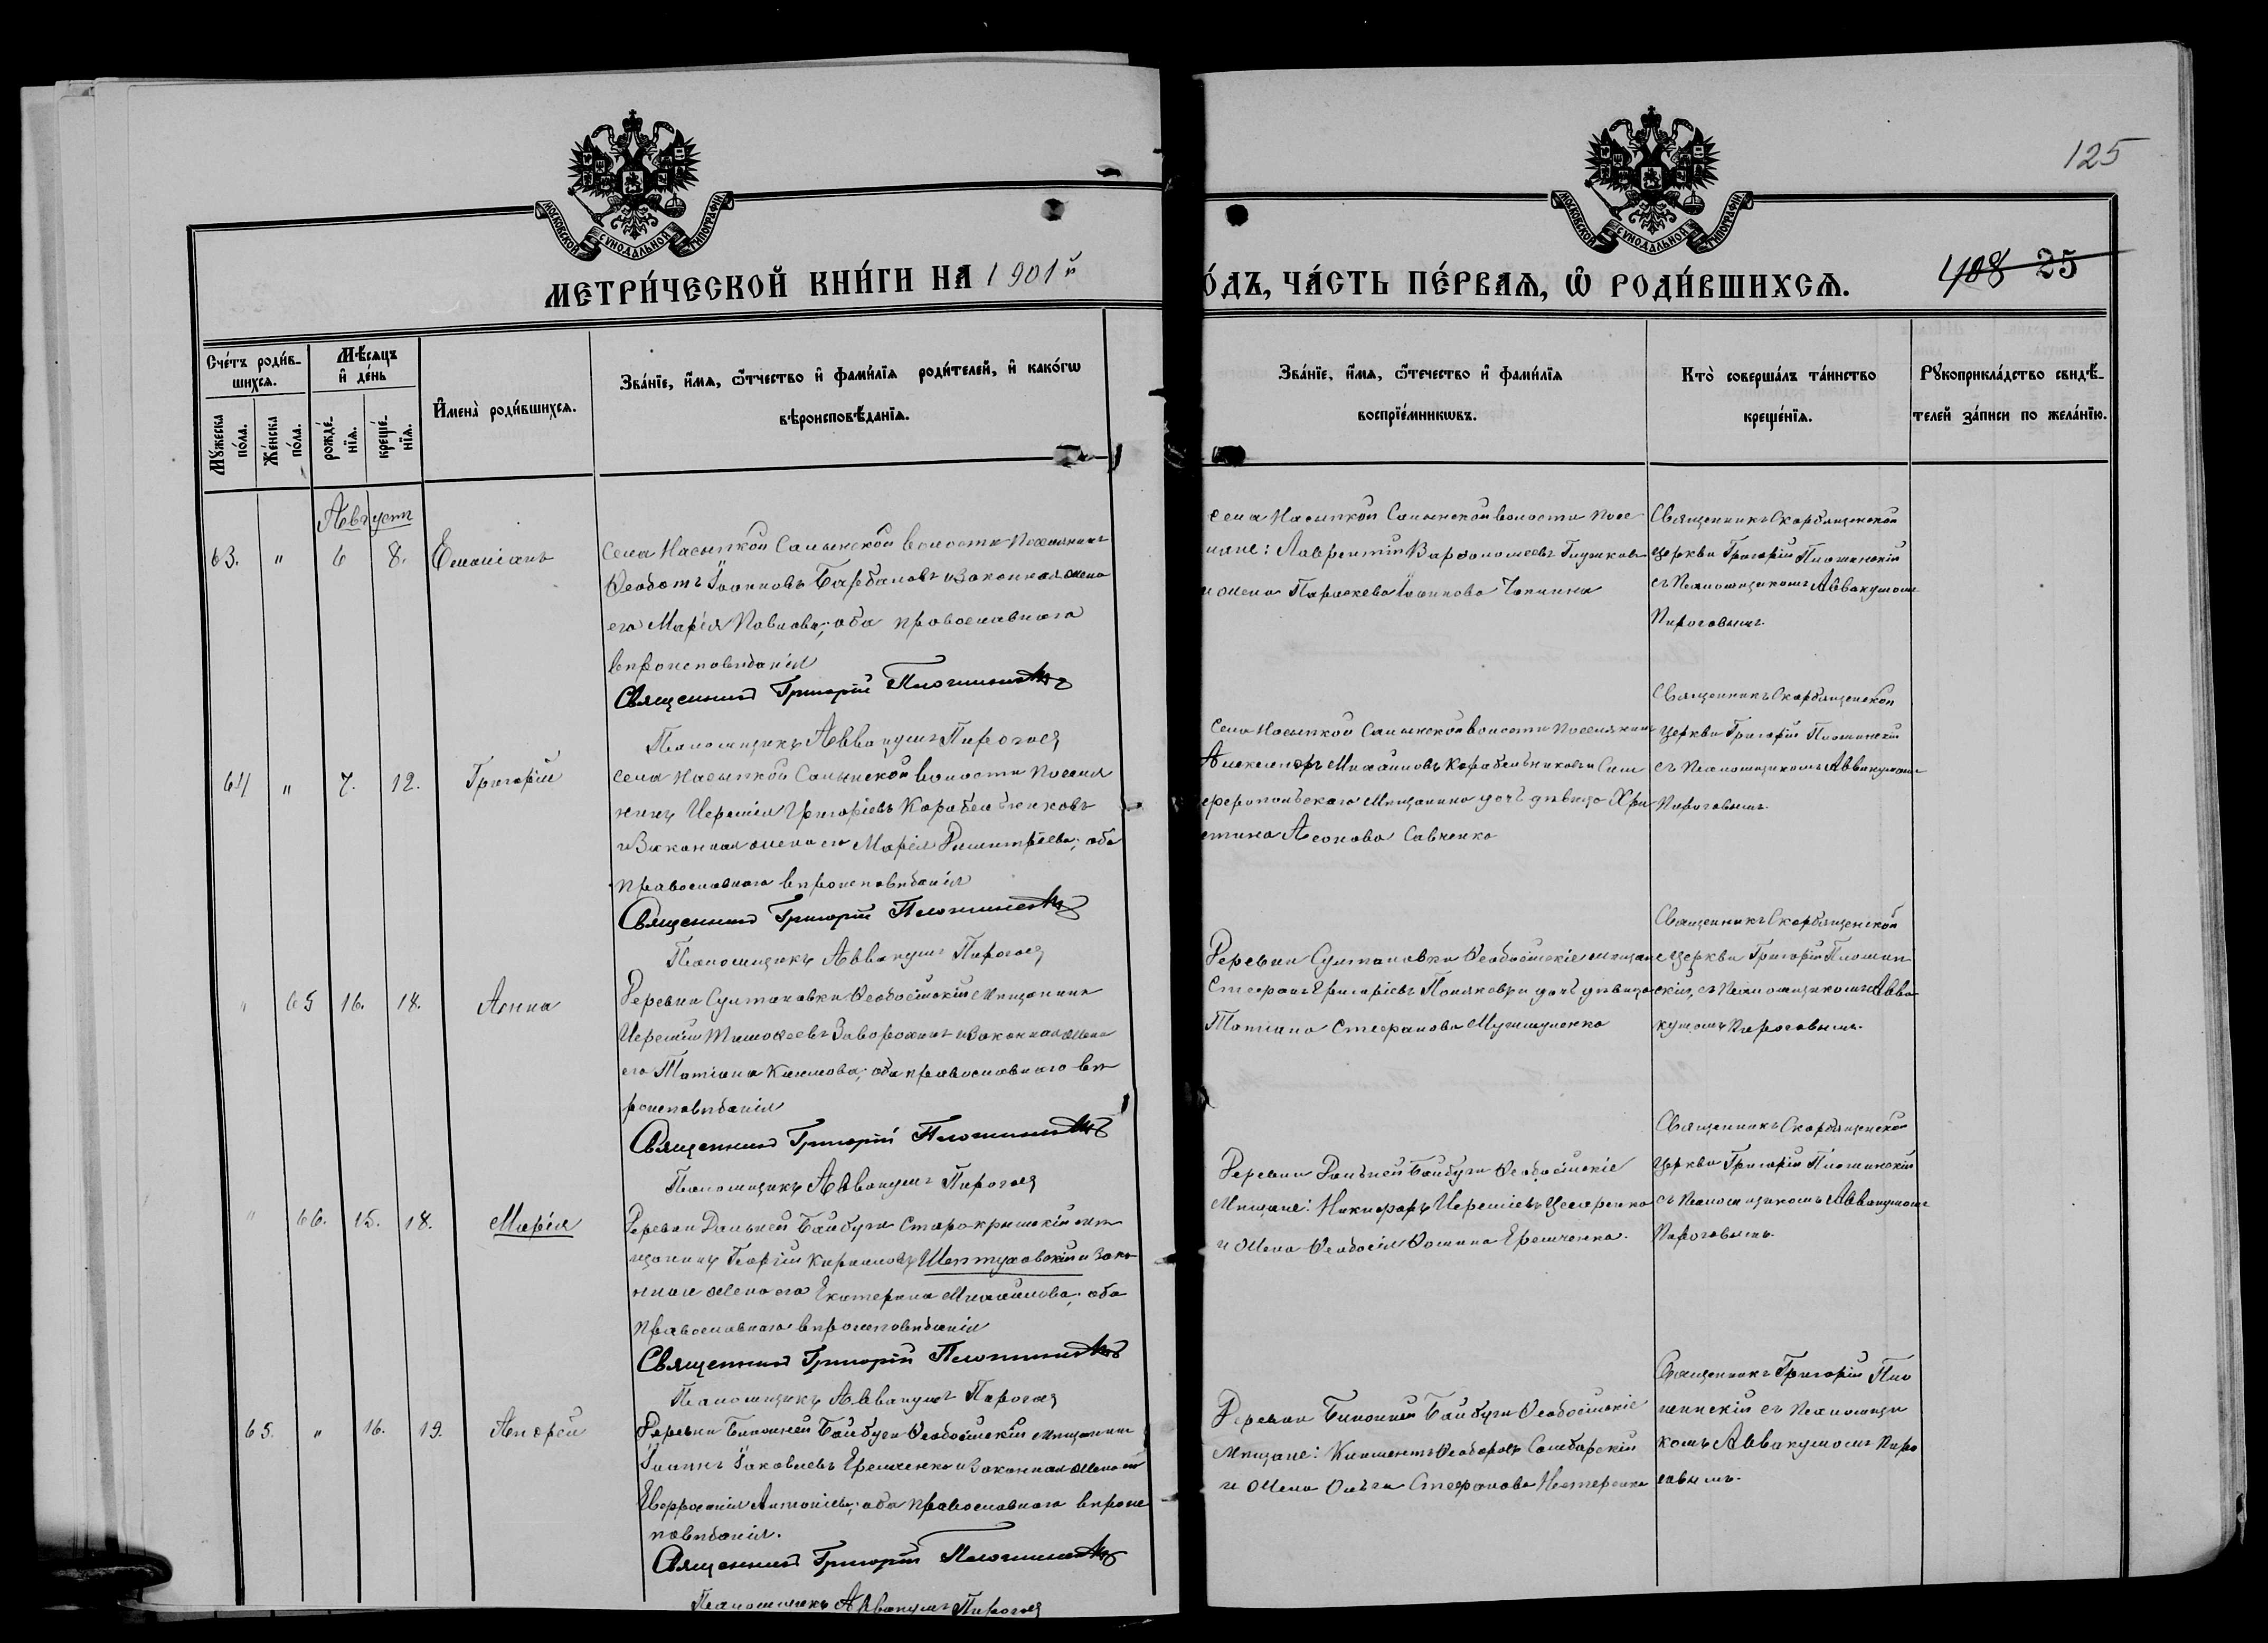 125
МОСКОВСКОЙ СУНОДАЛЬНОЙ ТИПОГРАФІИ
МОСКОВСКОЙ СУНОДАЛЬНОЙ ТИПОГРАФІИ
МЕТРИ́ЧЕСКОЙ КНИ́ГИ НА 1901й
О́ДЪ, ЧА́СТЬ ПЕ́РВАѦ, Ѡ҆ РОДИ́ВШИХСѦ.
408 25
Сче́тъ роди́в-
шихсѧ.
Мѣ́сѧцъ
и҆ де́нь
Мꙋ́жеска
по́ла.
Же́нска
по́ла.
рожде́-
нїѧ.
креще́-
нїѧ.
И҆мена̀ роди́вшихсѧ.
Зва́нїе, и҆́мѧ, ѻ҆́тчество и҆ фами́лїѧ роди́телей, и҆ како́гѡ
вѣроисповѣ́данїѧ.
Зва́нїе, и҆́мѧ, ѻ҆́течество и҆ фами́лїѧ
воспрїе́мникѡвъ.
Кто̀ соверша́лъ та́инство
креще́нїѧ.
Рꙋкоприкла́дство свидѣ́-
телей за́писи по жела́нїю.
Августъ
63. " 6 8. Емиліанъ
Села Насыпкой Салынской волости Поселянинъ
Ѳеодотъ Іоанновъ Барбановъ и законная жена
его Марія Павлова; оба православнаго
вѣроисповѣданія
Священникъ Григорій Плошинскій
Псаломщикъ Аввакумъ Пироговъ
села Насыпкой Салынской волости Посе-
ляне: Лаврентій Варѳоломеевъ Глушковъ
и жена Параскева Іоаннова Чапкина
Священникъ Скорбященской
церкви Григорій Плошинскій
съ Псаломщикомъ Аввакумомъ
Пироговымъ.
64 " 7. 12. Григорій
села Насыпкой Салынской волости Поселя
нинъ Іеремія Григоріевъ Карабельниковъ
и законная жена его Марія Димитріева; оба
православнаго вѣроисповѣданія
Священникъ Григорій Плошинскій
Псаломщикъ Аввакумъ Пироговъ
Села Насыпкой Салынской волости Поселянинъ
Александръ Михайловъ Карабельниковъ и Сим
феропольскаго Мѣщанина дочь дѣвица Хри
стина Леонова Савченко
Священникъ Скорбященской
церкви Григорій Плошинскій
съ Псаломщикомъ Аввакумомъ
Пироговымъ.
" 65 16. 18. Анна
Деревни Султановки Ѳеодосійскій Мѣщанинъ
Іеремія Тимоѳеевъ Заворожинъ и законная жена
его Татіана Климова; оба православнаго вѣ
роисповѣданія
Священникъ Григорій Плошинскій
Псаломщикъ Аввакумъ Пироговъ
Деревни Султановки Ѳеодосійскіе мѣщане
Стефанъ Григоріевъ Поляковъ и дочь дѣвица
Татіана Стефанова
Священникъ Скорбященской
церкви Григорій Плошин
скій, съ Псаломщикомъ Авва
кумомъ Пироговымъ.
" 66. 15. 18. Марія
Деревни Дальней Байбуги Старокрымскій мѣ
щанинъ Георгій Кирилловъ Шептуховскій и зако
нная жена его Екатерина Михайлова; оба
православнаго вѣроисповѣданія
Священникъ Григорій Плошинскій
Псаломщикъ Аввакумъ Пироговъ
Деревни Дальней Байбуги Ѳеодосійскіе
Мѣщане: Никифоръ Іереміевъ Цесаренко
и жена Ѳеодосія Ѳомина Еременко.
Священникъ Скорбященской
церкви Григорій Плошинскій
съ Псаломщикомъ Аввакумомъ
Пироговымъ.
65. " 16. 19. Андрей
Деревни Ближней Байбуги Ѳеодосійскій мѣщанинъ
Іоаннъ Іаковлевъ Еременко и законная жена его
Евфросинія Антоніева; оба православнаго вѣроис
повѣданія.
Священникъ Григорій Плошинскій
Псаломщикъ Аввакумъ Пироговъ
Деревни Ближней Байбуги Ѳеодосійскіе
Мѣщане: Климентъ Ѳеодоровъ Самбарскій
и жена Ольга Стефанова Нестеренко
Священникъ Григорій Пло
шинскій съ Псаломщи
комъ Аввакумомъ Пиро
говымъ.